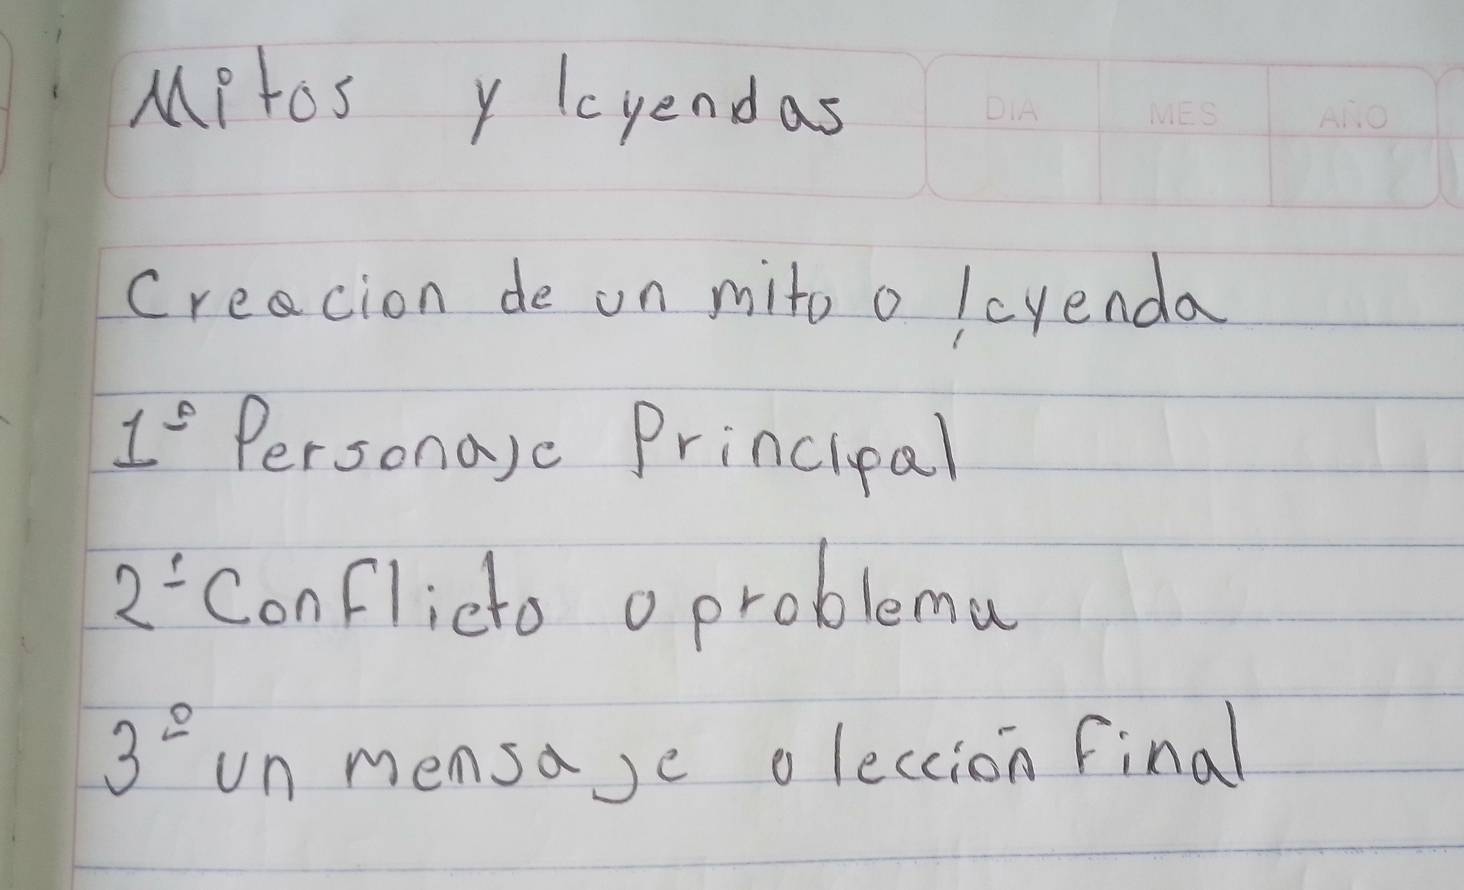 Mitos y leyendas
DIA MES AÑO
Creacion de un mito o leyenda
1º Personaje Principal
2º Conflicto o problema
3º un mensaje o lección final